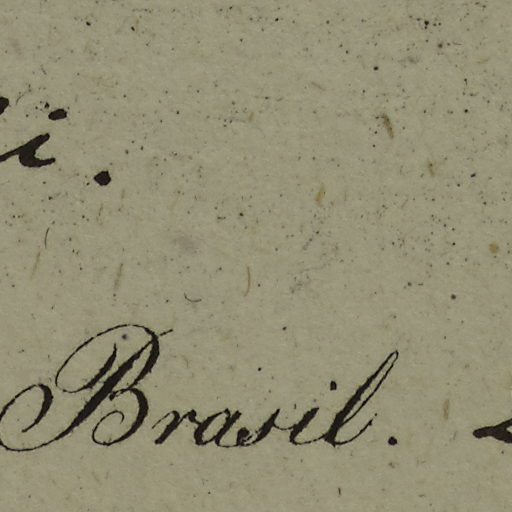 i.
Brasil.